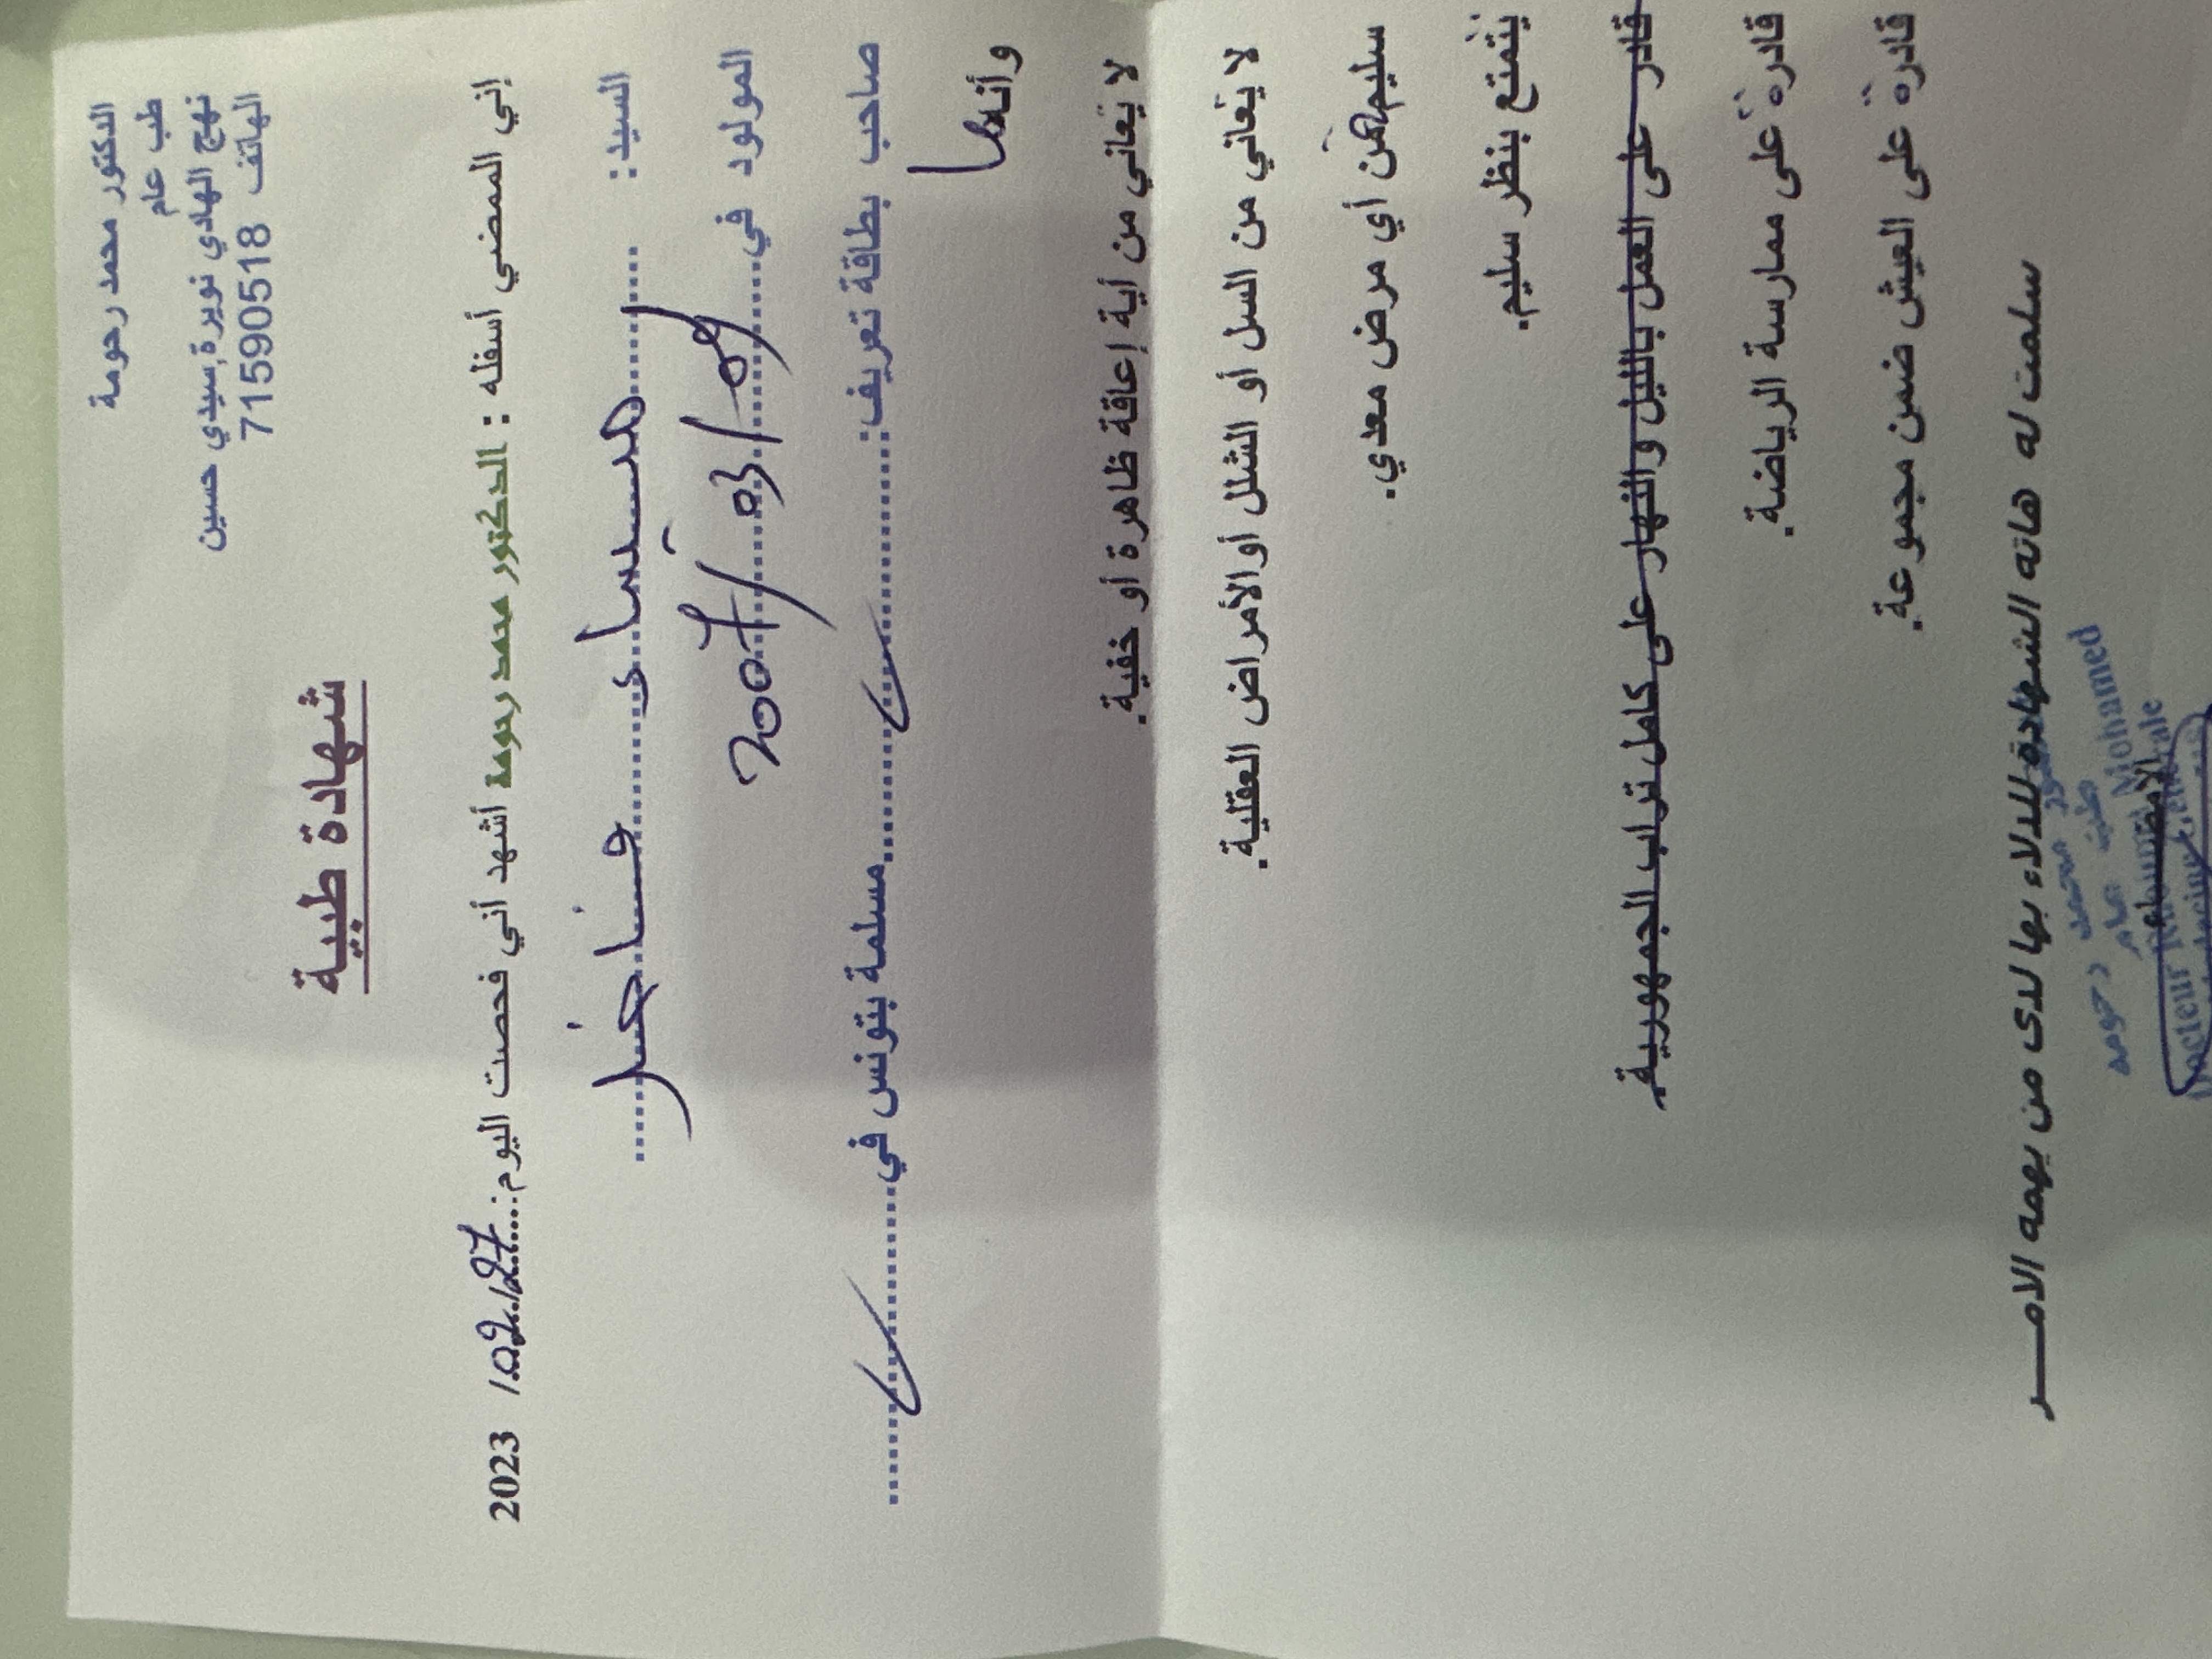 الدكتور محمد رحومة
طب عام
نهج الهادي نويرة,سيدي حسين
الهاتف 71590518
شهادة طبية
إني الممضي أسفله : الدكتور محمد رحومة أشهد أني فحصت اليوم:...27/02/ 2023
السيد: ...
المولود في...09/03/2007
صاحب بطاقة تعريف:...مسلمة بتونس في...
وأنها
لا يعاني من أية إعاقة ظاهرة أو خفية.
لا يعاني من السل أو الشلل أوالأمراض العقلية.
سليمة من أي مرض معدي.
يتمتع بنظر سليم.
قادر على العمل بالليل والنهار على كامل تراب الجمهورية.
قادرة على ممارسة الرياضة.
قادرة على العيش ضمن مجموعة.
سلمت له هاته الشهادة للادلاء بها لدى من يهمه الامـــر
الامضاء
محمد رحومة
طب عام
Docteur Mohamed